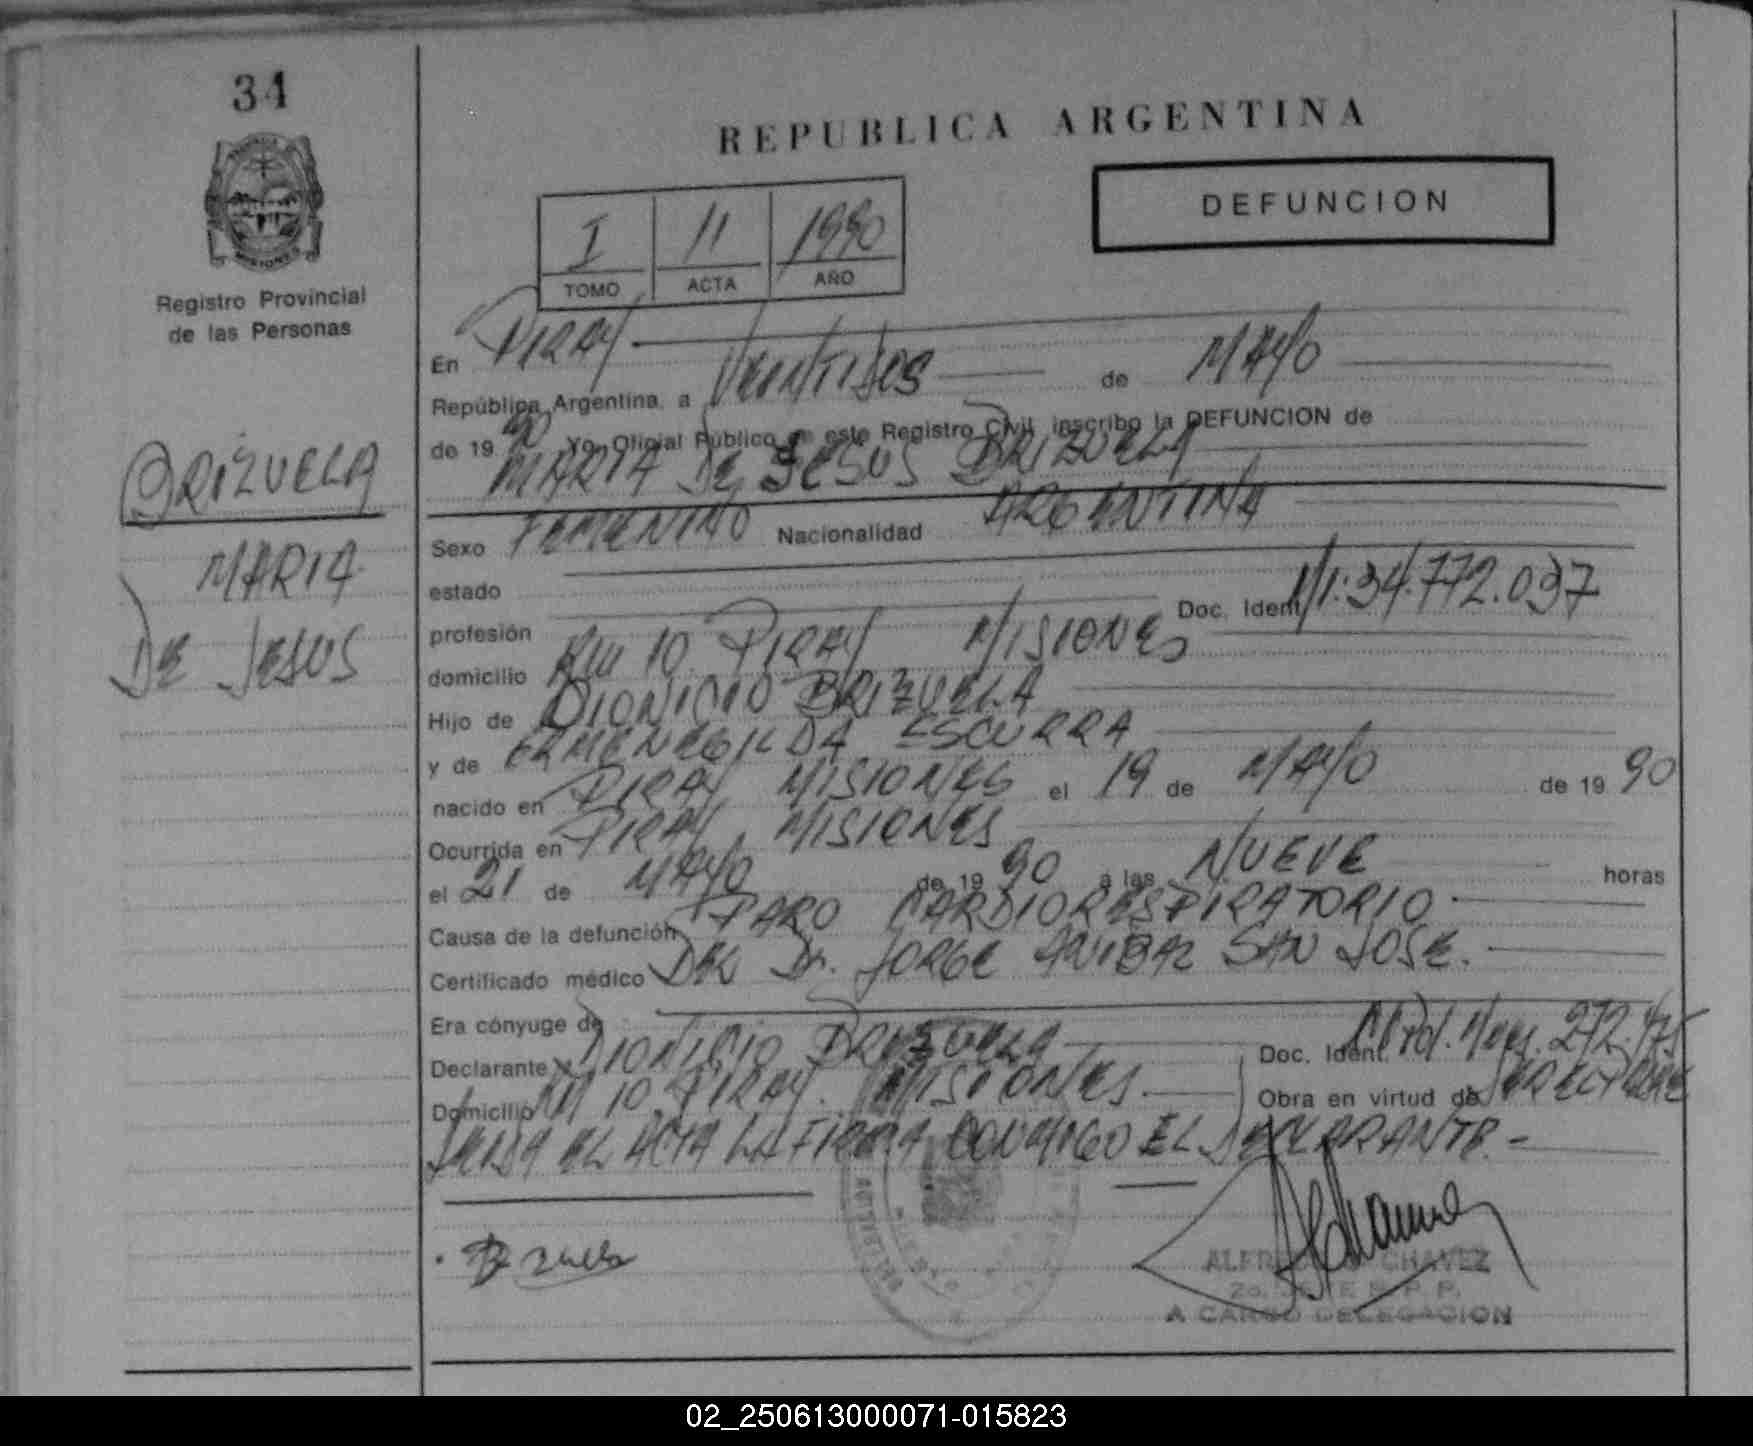 34
REPUBLICA ARGENTINA
DEFUNCION
MISIONES
Registro Provincial
de las Personas
I 11 1990
TOMO ACTA AÑO
BRIZUELA
MARIA
DE JESUS
En PIRAY
República Argentina, a VEINTIDOS de MAYO
de 19 90 Yo, Oficial Público de este Registro Civil, inscribo la DEFUNCION de
MARIA DE JESUS BRIZUELA
Sexo FEMENINO Nacionalidad ARGENTINA
estado
profesión Doc. Ident. 34.772.037
domicilio Km 10 PIRAY MISIONES
Hijo de DIONICIO BRIZUELA
y de ERMENEGILDA ESCURRA
nacido en PIRAY MISIONES el 19 de MAYO de 19 90
Ocurrida en PIRAY MISIONES
el 21 de MAYO de 19 90 a las NUEVE horas
Causa de la defunción PARO CARDIORESPIRATORIO
Certificado médico DEL Dr. JORGE ANIBAL SAN JOSE.
Era cónyuge de
Declarante DIONICIO BRIZUELA Doc. Ident. 272.475
Domicilio KM 10 PIRAY. MISIONES Obra en virtud de
LEIDA EL ACTA LA FIRMA CONMIGO EL DECLARANTE.-
ALFREDO CHAVEZ
A CARGO DELEGACION
02_250613000071-015823